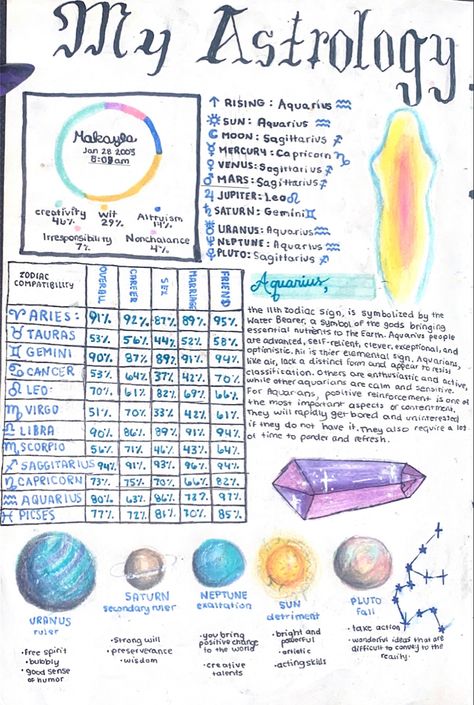 My Astrology
Makayla
Jan 28 2003
8:09am
creativity 46%
wit 29%
Altruism 14%
Irresponsibility 7%
Nonchalance 4%
↑ RISING: Aquarius ♒
☼ SUN: Aquarius ♒
☾ MOON: Sagittarius ♐
☿ MERCURY: Capricorn ♑
♀ VENUS: Sagittarius ♐
♂ MARS: Sagittarius ♐
♃ JUPITER: Leo ♌
♄ SATURN: Gemini ♊
♅ URANUS: Aquarius ♒
♆ NEPTUNE: Aquarius ♒
♇ PLUTO: Sagittarius ♐
ZODIAC COMPATIBILITY OVERALL CAREER SEX MARRIAGE FRIEND
♈ ARIES: 91% 92% 87% 89% 95%
♉ TAURAS 53% 56% 44% 52% 58%
♊ GEMINI 90% 87% 89% 91% 94%
♋ CANCER 53% 64% 37% 42% 70%
♌ LEO: 70% 61% 82% 69% 66%
♍ VIRGO 51% 70% 33% 42% 61%
♎ LIBRA 90% 86% 89% 91% 94%
♏ SCORPIO 56% 71% 46% 43% 64%
♐ SAGGITARIUS 94% 91% 93% 96% 94%
♑ CAPRICORN 73% 75% 70% 66% 82%
♒ AQUARIUS 80% 63% 86% 72% 97%
♓ PICSES 77% 72% 81% 70% 85%
Aquarius,
the 11th zodiac sign, is symbolized by the
Water Bearer, a symbol of the gods bringing
essential nutrients to the Earth. Aquarius people
are advanced, self-relient, clever, exceptional, and
optimistic. Air is thier elemental sign, Aquarians,
like air, lack a distinct form and appear to resist
classification. Others are enthusiastic and active,
while other aquarians are calm and sensitive.
For Aquarians, positive reinforcement is one of
the most important aspects of contentment.
They will rapidly get bored and uninterested
if they do not have it. They also require a lot
of time to ponder and refresh.
URANUS
ruler
• free spirit
• bubbly
• good sense of humor
SATURN
secondary ruler
• Strong will
• perserverance
• wisdom
NEPTUNE
exaltation
• you bring positive change to the world
• creative talents
SUN
detriment
• bright and powerful
• artistic
• acting skills
PLUTO
fall
• take action
• wonderful ideas that are difficult to convey to the reality.